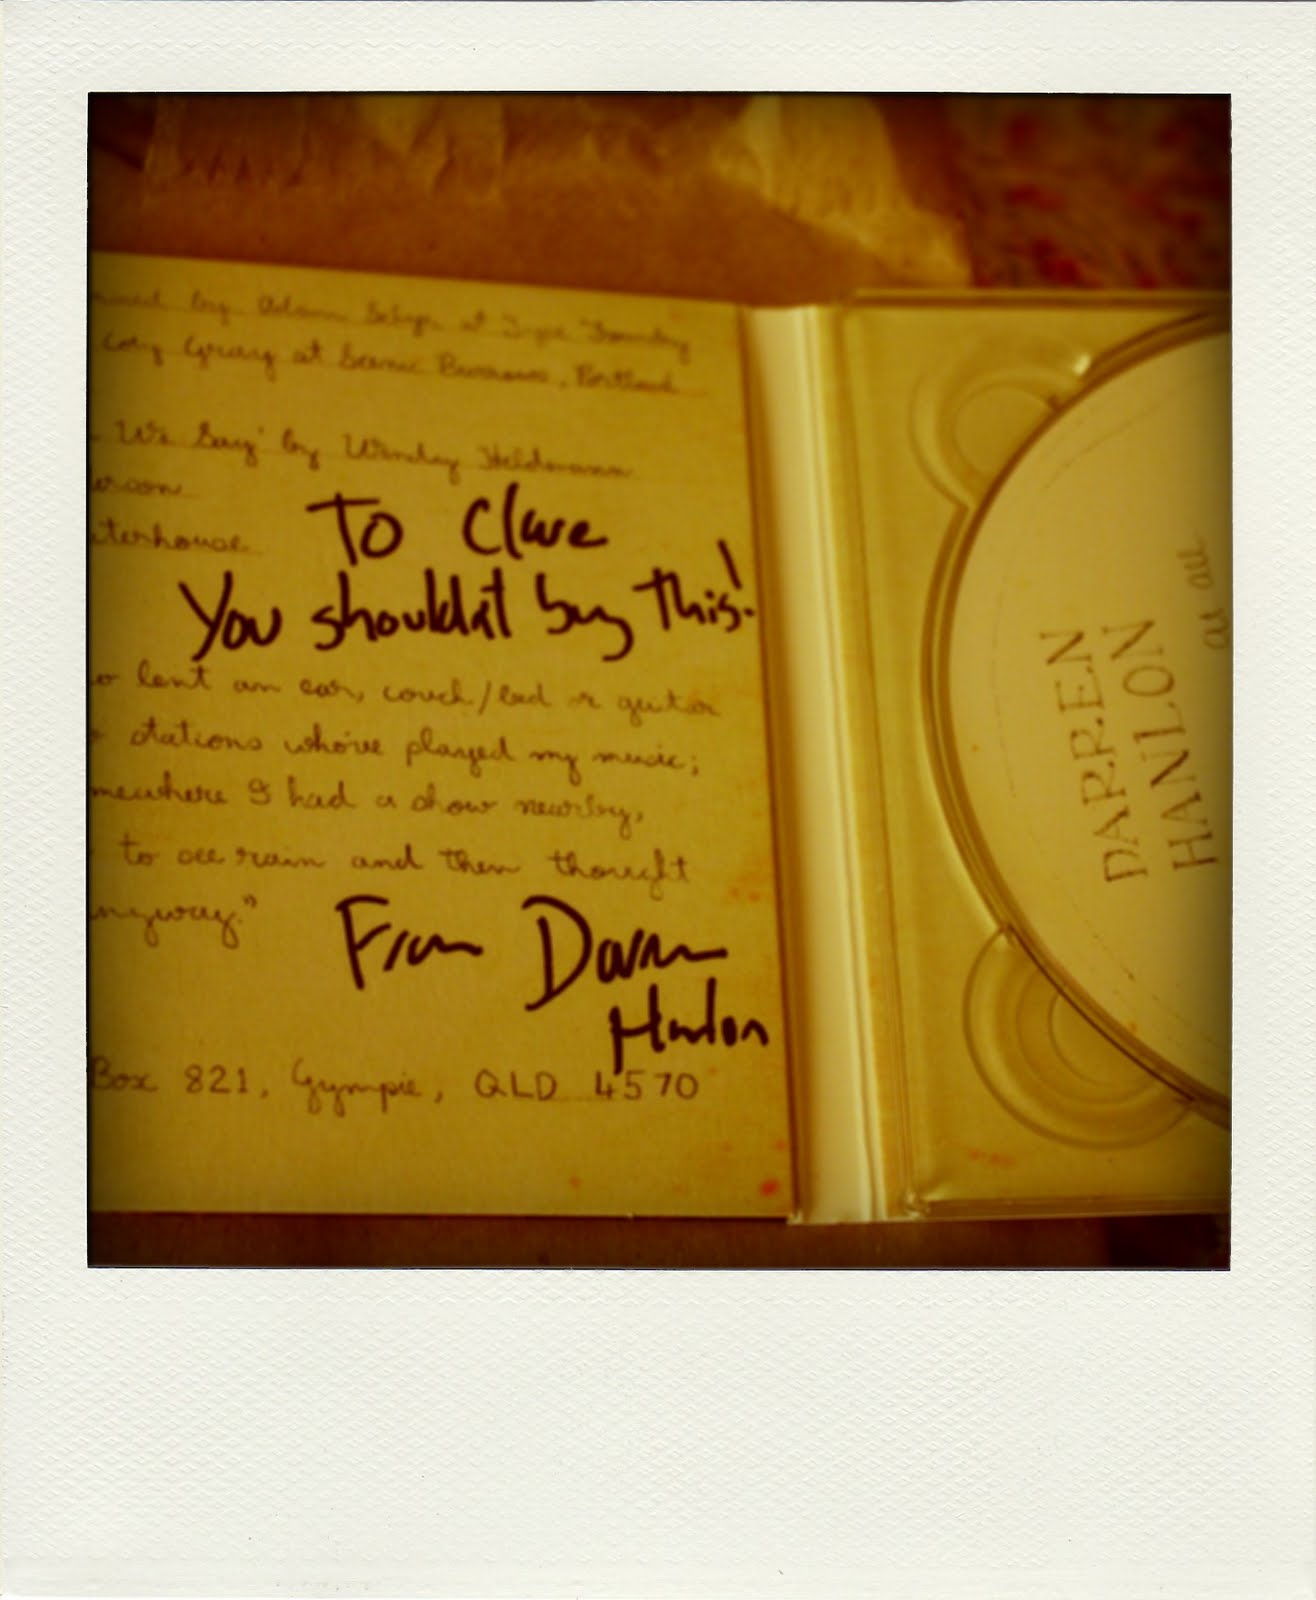 by Adam at Type Foundry
Cory Gray at Scenic Burrows, Portland
We Say' by Wendy Heldmann
erson
aterhouse
To Clare
You shouldn't buy this!
o lent an ear, couch/bed or guitar
stations who've played my music;
mewhere I had a show nearby,
to see rain and then thought
nyway."
From Darren
Hanlon
Box 821, Gympie, QLD 4570
DARREN
HANLON